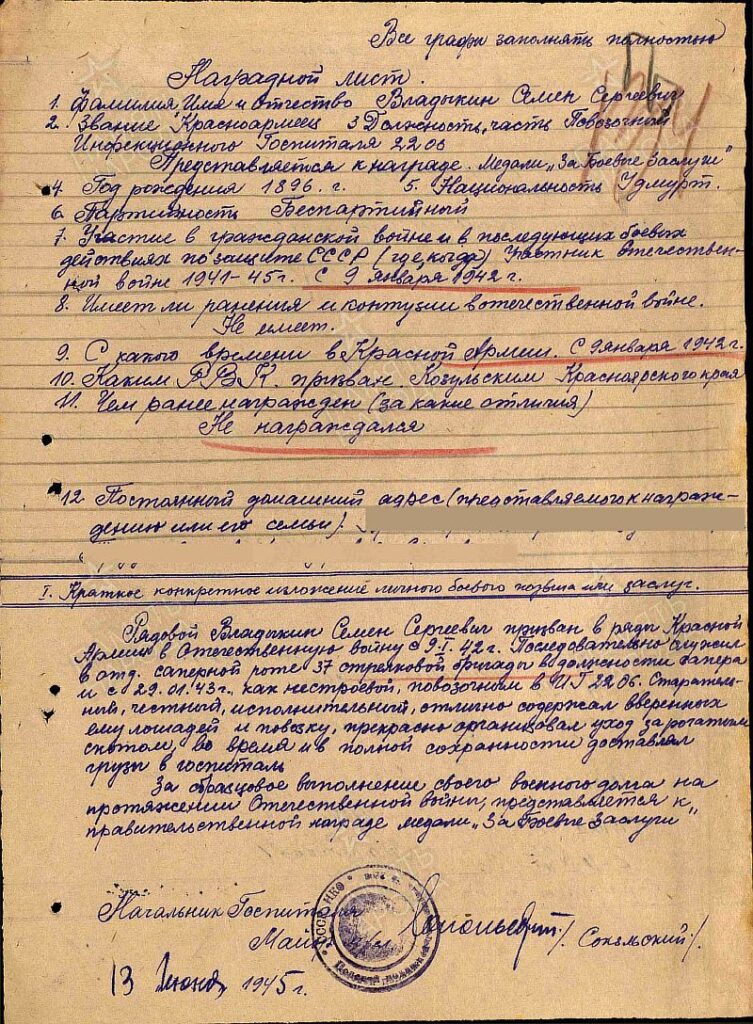 Все графы заполнять полностью
Наградной лист.
1. Фамилия Имя и отчество Владыкин Семен Сергеевич
2. Звание Красноармеец 3 Должность, часть Повозочный
Инфекционного Госпиталя 2206
Представляется к награде. Медали „За Боевые Заслуги"
4. Год рождения 1896. г. 5. Национальность Удмурт.
6. Партийность Беспартийный
7. Участие в гражданской войне и в последующих боевых
действиях по защите СССР (где, когда) Участник Отечествен-
ной войне 1941-45г. С 9 января 1942 г.
8. Имеет ли ранения и контузии в отечественной войне.
Не имеет.
9. С какого времени в Красной Армии. С 9 января 1942 г.
10. Каким Р.В.К. призван. Козульским Красноярского края
11. Чем ранее награжден (за какие отличия)
Не награждался
12. Постоянный домашний адрес (представляемого к награж-
дению или его семьи).
I. Краткое конкретное изложение личного боевого подвига или заслуг.
Рядовой Владыкин Семен Сергеевич призван в ряды Красной
Армии в Отечественную войну с 9.I.42г. Последовательно служил
в отд. саперной роте 37 стрелковой бригады в должности сапера
и с 29.01.43г. как нестроевой, повозочным в ИГ 2206. Старатель-
ный, честный, исполнительный, отлично содержал вверенных
ему лошадей и повозку, прекрасно организовал уход за рогатым
скотом, во время и в полной сохранности доставлял
грузы в госпиталь
За образцовое выполнение своего военного долга на
протяжении Отечественной войны, представляется к
правительственной награде медали „За Боевые Заслуги"
Начальник Госпиталя
Майор /Сокольский/.
СССР НКО
13 Июня 1945 г.